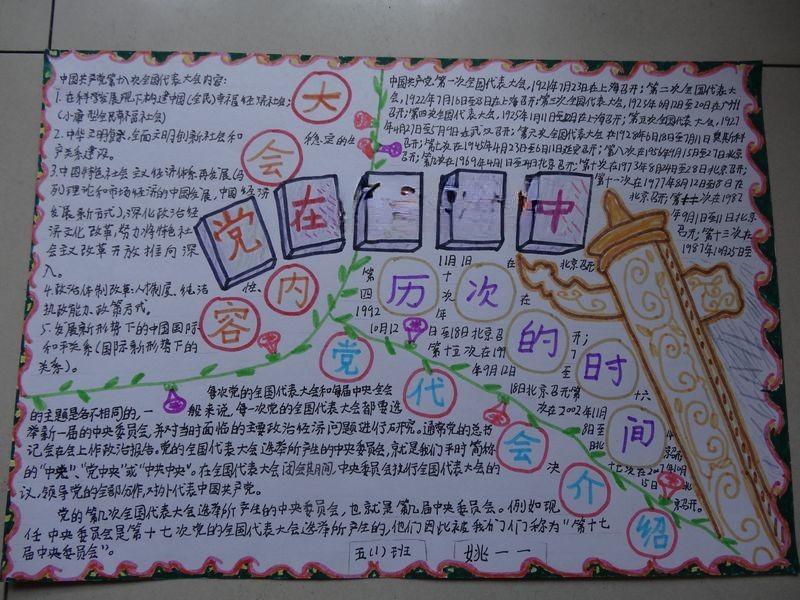 中国共产党第十八次全国代表大会内容:
1.在科学发展观下构建中国(全民)幸福经济社会;
(小康型幸福社会)
2.中华文明偉象,全面文明创新社会和
户关系建设。
3.中国特色社会主义经济体系再发展(马
列)理论和市场经济的中国发展,中国经济
发展新方式),深化政治经
济文化改革,努力将特色
社会主义改革开放推向深
入。
4.政治体制改革
执政能力、政策方式。
5.发展新形势下的中国国际
和平关系(国际新形势下的
关系)。
大会内容
党在
中
历次的时间
党代会介绍
中国共产党第一次全国代表大会,1921年7月23日在上海召开;第二次全国代表大
会,1922年7月16日至23日在上海召开;第三次全国代表大会,1923年6月12日至20日在广州
召开;第四次全国代表大会,1925年1月11日至22日在上海召开;第五次全国代表大会,1927
年4月27日至5月9日在武汉召开;第六次全国代表大会在1928年6月18日至7月11日莫斯科
召开;第七次在1945年4月23日至6月11日延安召开;第八次在1956年9月15日至27日北京
召开;第九次在1969年4月1日至24日北京召开;第十次在1973年8月24日至28日北京召开;
第十一次在1977年8月12日至18日在
北京召开;第十二次在1982
年9月1日至11日北京
召开;第十三次在
1987年10月25日至
11月1日在北京召开
第十四次在
1992年
10月12日至18日北京召开;
第十五次在1997
年9月12日至
18日北京召开第十六
次在2002年11月
8日至
北京召开
十七次在2007年10月
15日
召开。
每次党的全国代表大会和每届中央全会
的主题是各不相同的,一般来说,每一次党的全国代表大会都要选
举新一届的中央委员会,并对当时面临的主要政治经济问题进行研究。通常党的总书
记会在会上作政治报告。党的全国代表大会选举所产生的中央委员会,就是我们平时简称
的“中央”、“党中央”或“中共中央”。在全国代表大会闭会期间,中央委员会执行全国代表大会的决
议,领导党的全部工作,对外代表中国共产党。
党的第几次全国代表大会选举所产生的中央委员会,也就是第几届中央委员会。例如现
任中央委员会是第十七次党的全国代表大会选举所产生的,他们因此被我们人们称为“第十七
届中央委员会”。
五(1)班 姚一一